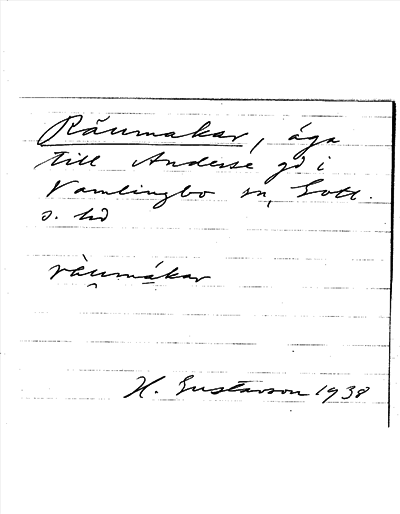 Räumakar, äga
till Anderse gd i
Vamlingbo sn, Gotl.
s. hd
ràu̯mákar
H. Gustavson 1938